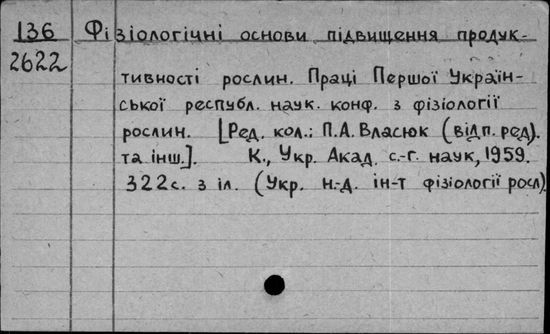 136 Фізіологічні основи підвищення продук-
2622
тивності рослин. Праці Першої Україн-
ської республ. наук. конф. з фізіології
рослин. [Ред. кол.: П.А. Власюк (відп. ред).
та інш.]. К., Укр. Акад. с.-г. наук, 1959.
322с. з іл. (Укр. н.-д. ін-т фізіології росл)